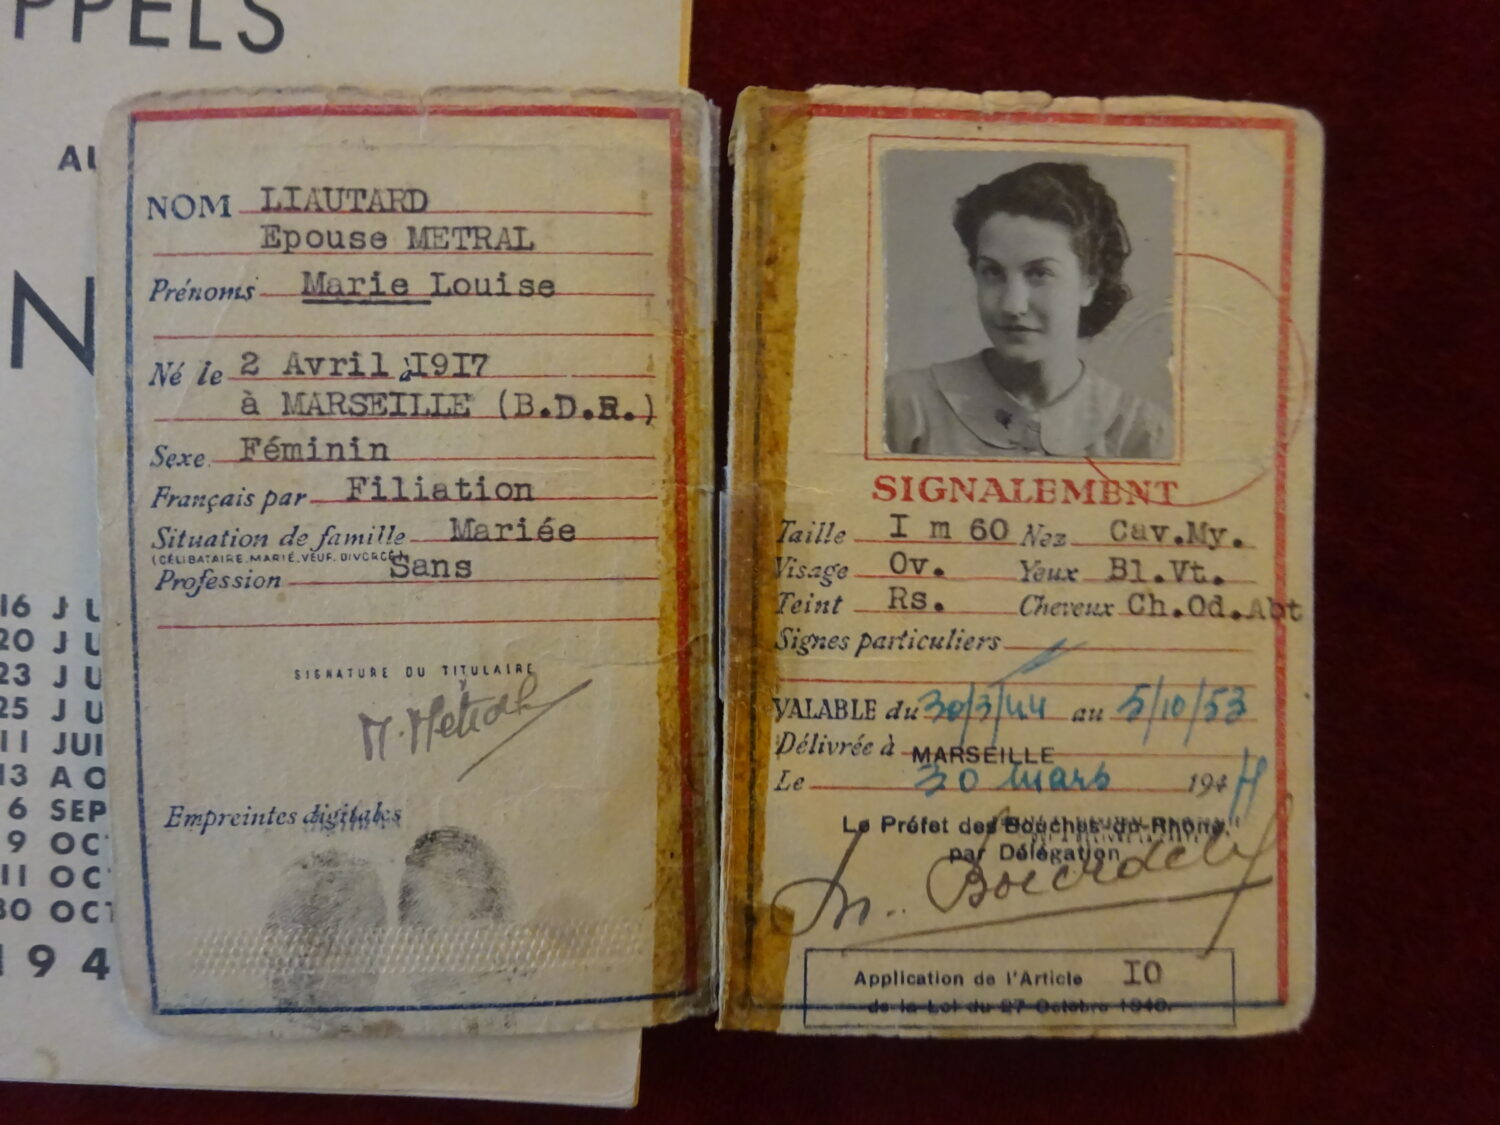 PPELS
AU
N
16 JU
20 JU
23 JU
25 JU
11 JUI
13 AO
6 SEP
9 OC
11 OC
30 OCT
194
NOM LIAUTARD
Epouse METRAL
Prénoms Marie Louise
Né le 2 Avril 1917
à MARSEILLE (B.D.R.)
Sexe Féminin
Français par Filiation
Situation de famille Mariée
(CÉLIBATAIRE, MARIÉ, VEUF, DIVORCÉ)
Profession Sans
SIGNATURE DU TITULAIRE
M. Metral
Empreintes digitales
SIGNALEMENT
Taille I m 60 Nez Cav.My.
Visage Ov. Yeux Bl.Vt.
Teint Rs. Cheveux Ch.Od.Abt
Signes particuliers
VALABLE du 30/3/44 au 5/10/53
Délivrée à MARSEILLE
Le 30 mars 1944
Le Préfet des Bouches-du-Rhône,
par Délégation
Application de l'Article IO
de la Loi du 27 Octobre 1940.